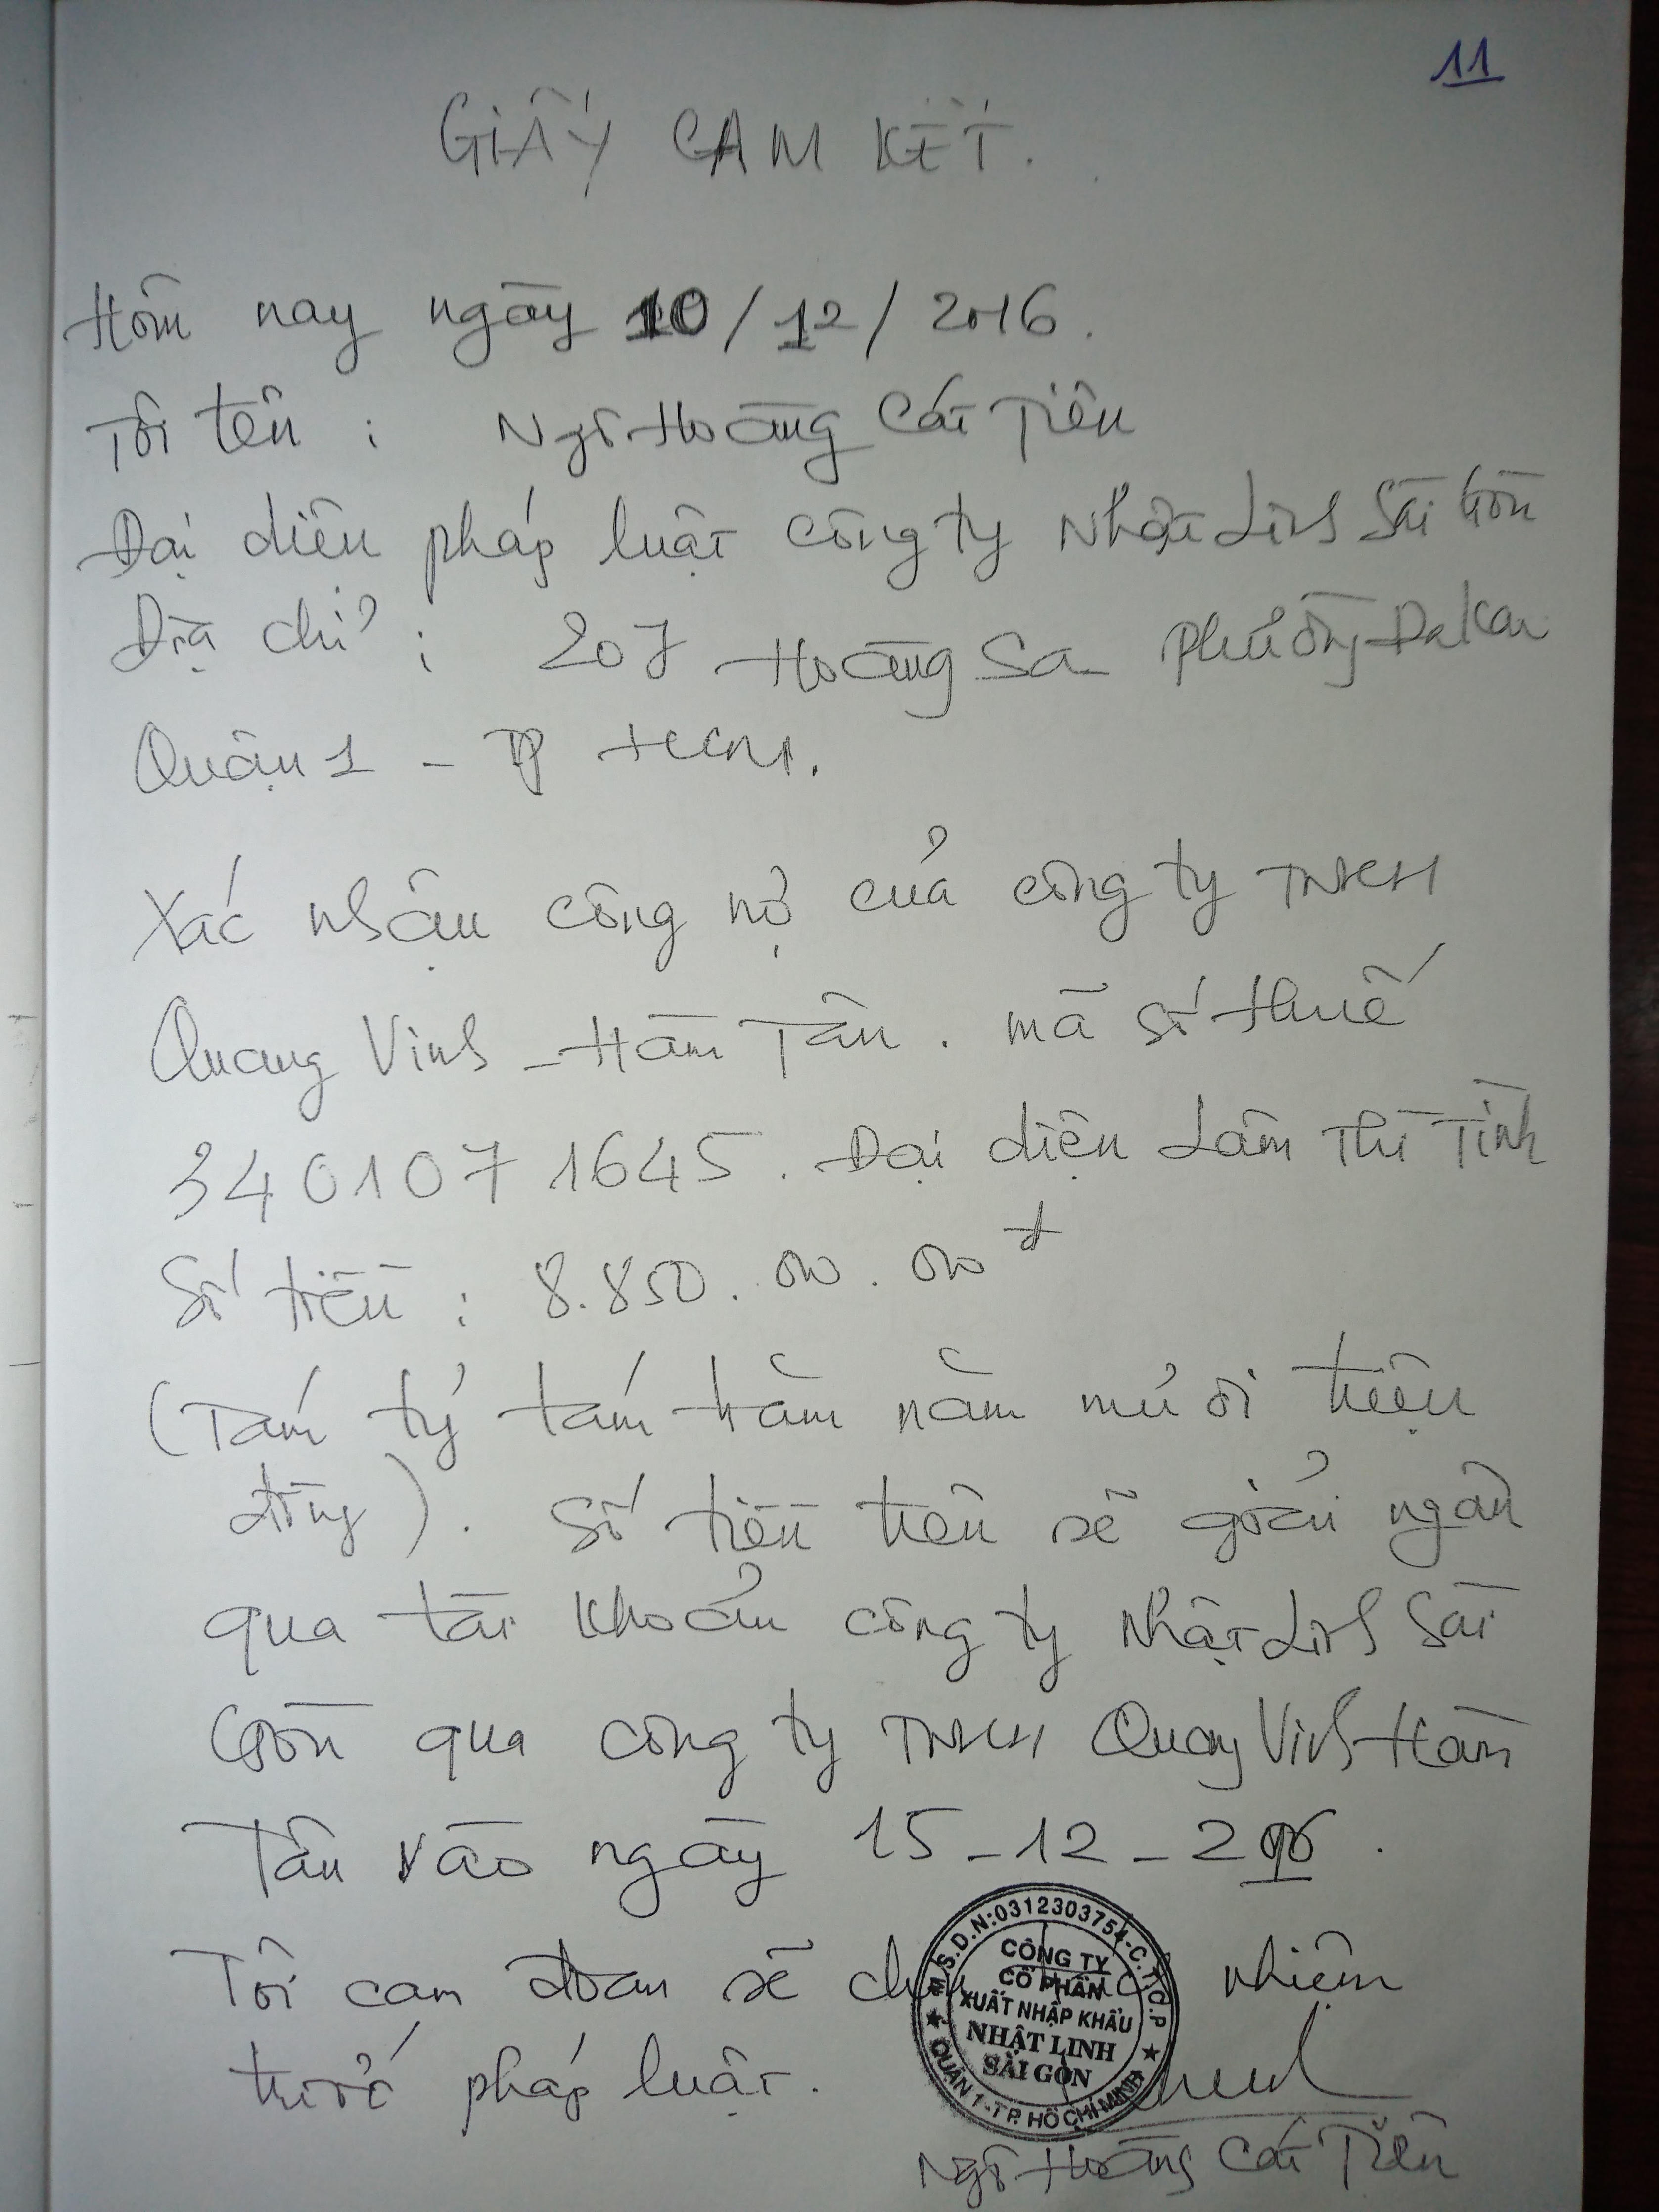 11
GIẤY CAM KẾT.
Hôm nay ngày 10/12/2016.
Tôi tên : Ngô Hoàng Cát Tiên
Đại diện pháp luật công ty Nhật Linh Sài Gòn
Địa chỉ : 207 Hoàng Sa Phường Đa Kao
Quận 1 - TP HCM.
Xác nhận công nợ của công ty TNHH
Quang Vinh - Hàm Tân. mã số thuế
3401071645. Đại diện Lâm Thị Tình
Số tiền : 8.850.000.000đ
(Tám tỷ tám trăm năm mươi triệu
đồng). Số tiền trên sẽ giải ngân
qua tài khoản công ty Nhật Linh Sài
Gòn qua công ty TNHH Quang Vinh Hàm
Tân vào ngày 15-12-2016.
Tôi cam đoan sẽ nhiệm
trước pháp luật.
M.S.D.N:0312303754-C.T.C.P
CÔNG TY
CỔ PHẦN
XUẤT NHẬP KHẨU
NHẬT LINH
SÀI GÒN
QUẬN 1-TP. HỒ CHÍ MINH
Ngô Hoàng Cát Tiên